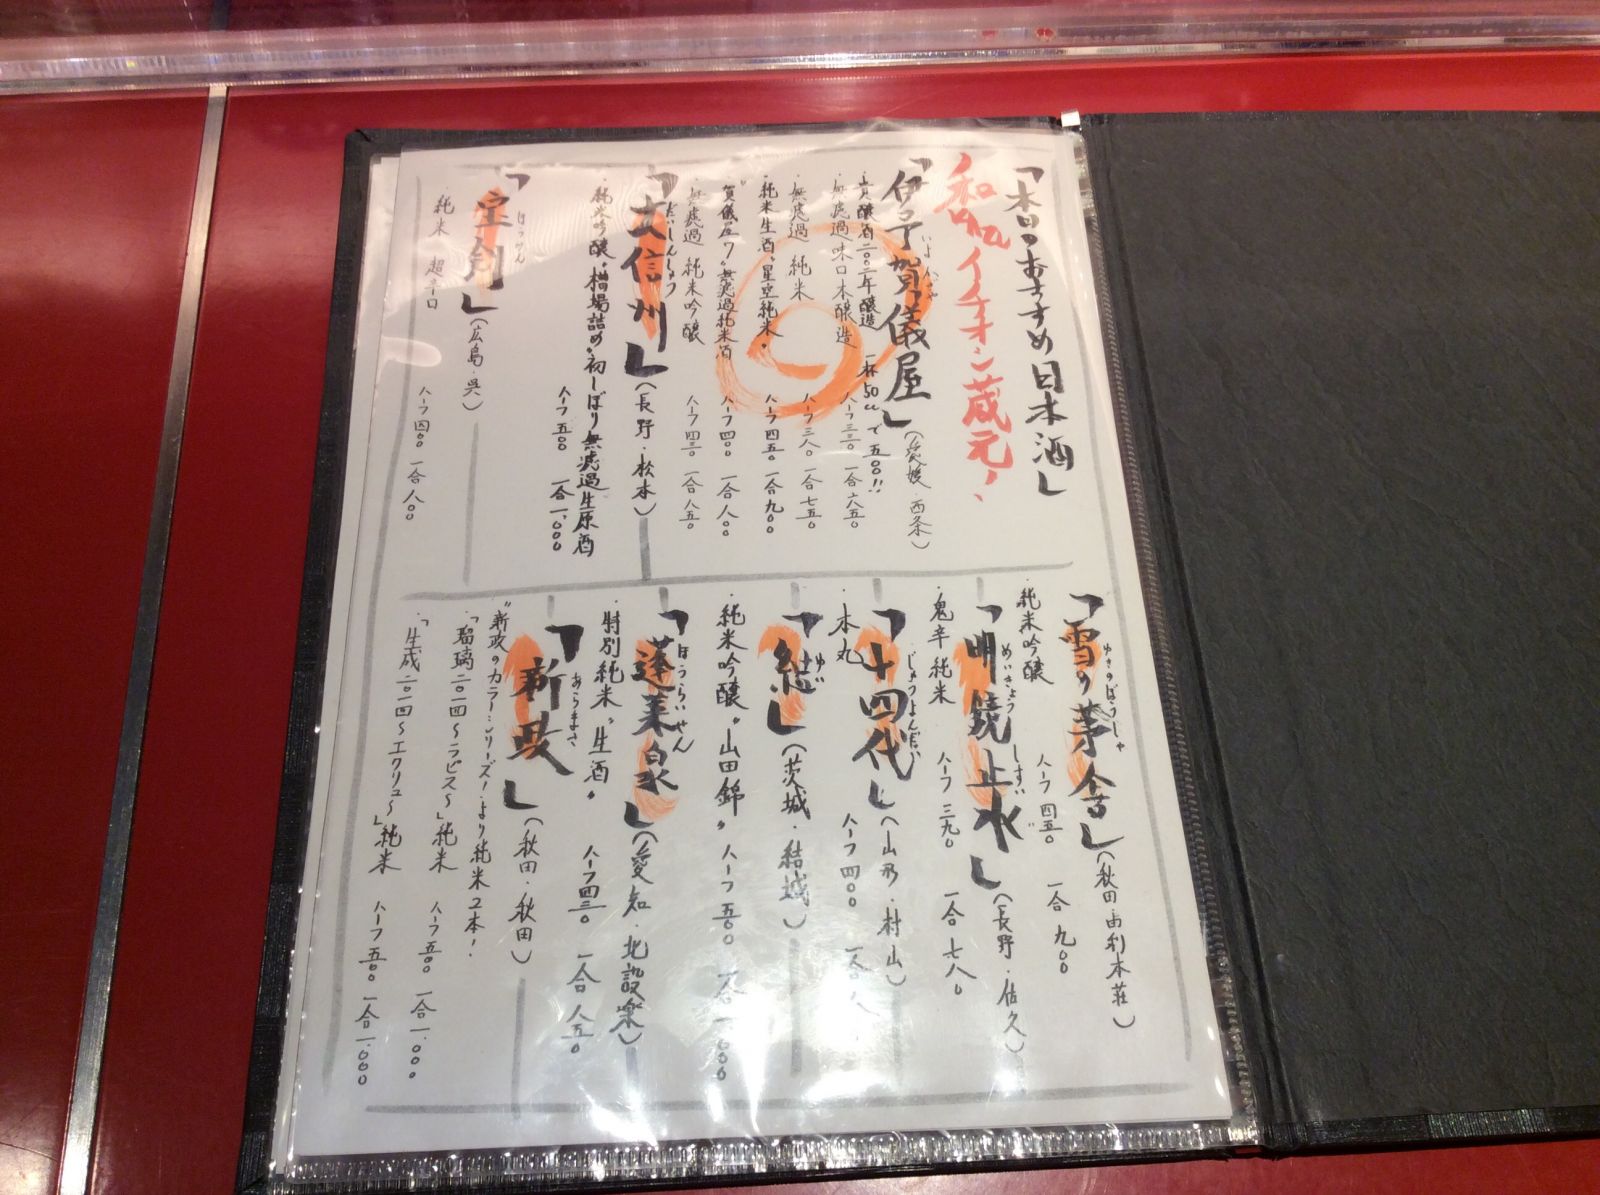 「本日のおすすめ日本酒」
イチオシ蔵元!
「伊予賀儀屋」(愛媛・西条)
いよかぎや
・貴醸酒二〇〇二年醸造 一杯50ccで五〇〇!!
・無濾過 味口本醸造 ハーフ三三〇 一合六五〇
・無濾過 純米 ハーフ三八〇 一合七五〇
・純米生酒〝星空純米〟 ハーフ四五〇 一合九〇〇
・〝賀儀屋7〟無濾過純米酒 ハーフ四〇〇 一合八〇〇
・無濾過 純米吟醸 ハーフ四三〇 一合八五〇
「大信州」(長野・松本)
だいしんしゅう
・純米吟醸〝槽場詰め〟初しぼり無濾過生原酒
ハーフ五〇〇 一合一,〇〇〇
「宝剣」(広島・呉)
ほうけん
・純米 超辛口
ハーフ四〇〇 一合八〇〇
「雪の茅舎」(秋田・由利本荘)
ゆきのぼうしゃ
・純米吟醸 ハーフ四五〇 一合九〇〇
「明鏡止水」(長野・佐久)
めいきょうしすい
・鬼辛 純米 ハーフ三九〇 一合七八〇
「十四代」(山形・村山)
じゅうよんだい
・本丸 ハーフ四〇〇 一合
「結」(茨城・結城)
ゆい
・純米吟醸〝山田錦〟 ハーフ五〇〇 一合一,〇〇〇
「蓬莱泉」(愛知・北設楽)
ほうらいせん
・特別純米〝生酒〟 ハーフ四三〇 一合八五〇
「新政」(秋田・秋田)
あらまさ
〝新政のカラーシリーズ!より純米2本!
・「瑠璃二〇一四〜ラピス〜」純米 ハーフ五〇〇 一合一,〇〇〇
・「生成二〇一四〜エクリュ〜」純米 ハーフ五〇〇 一合一,〇〇〇